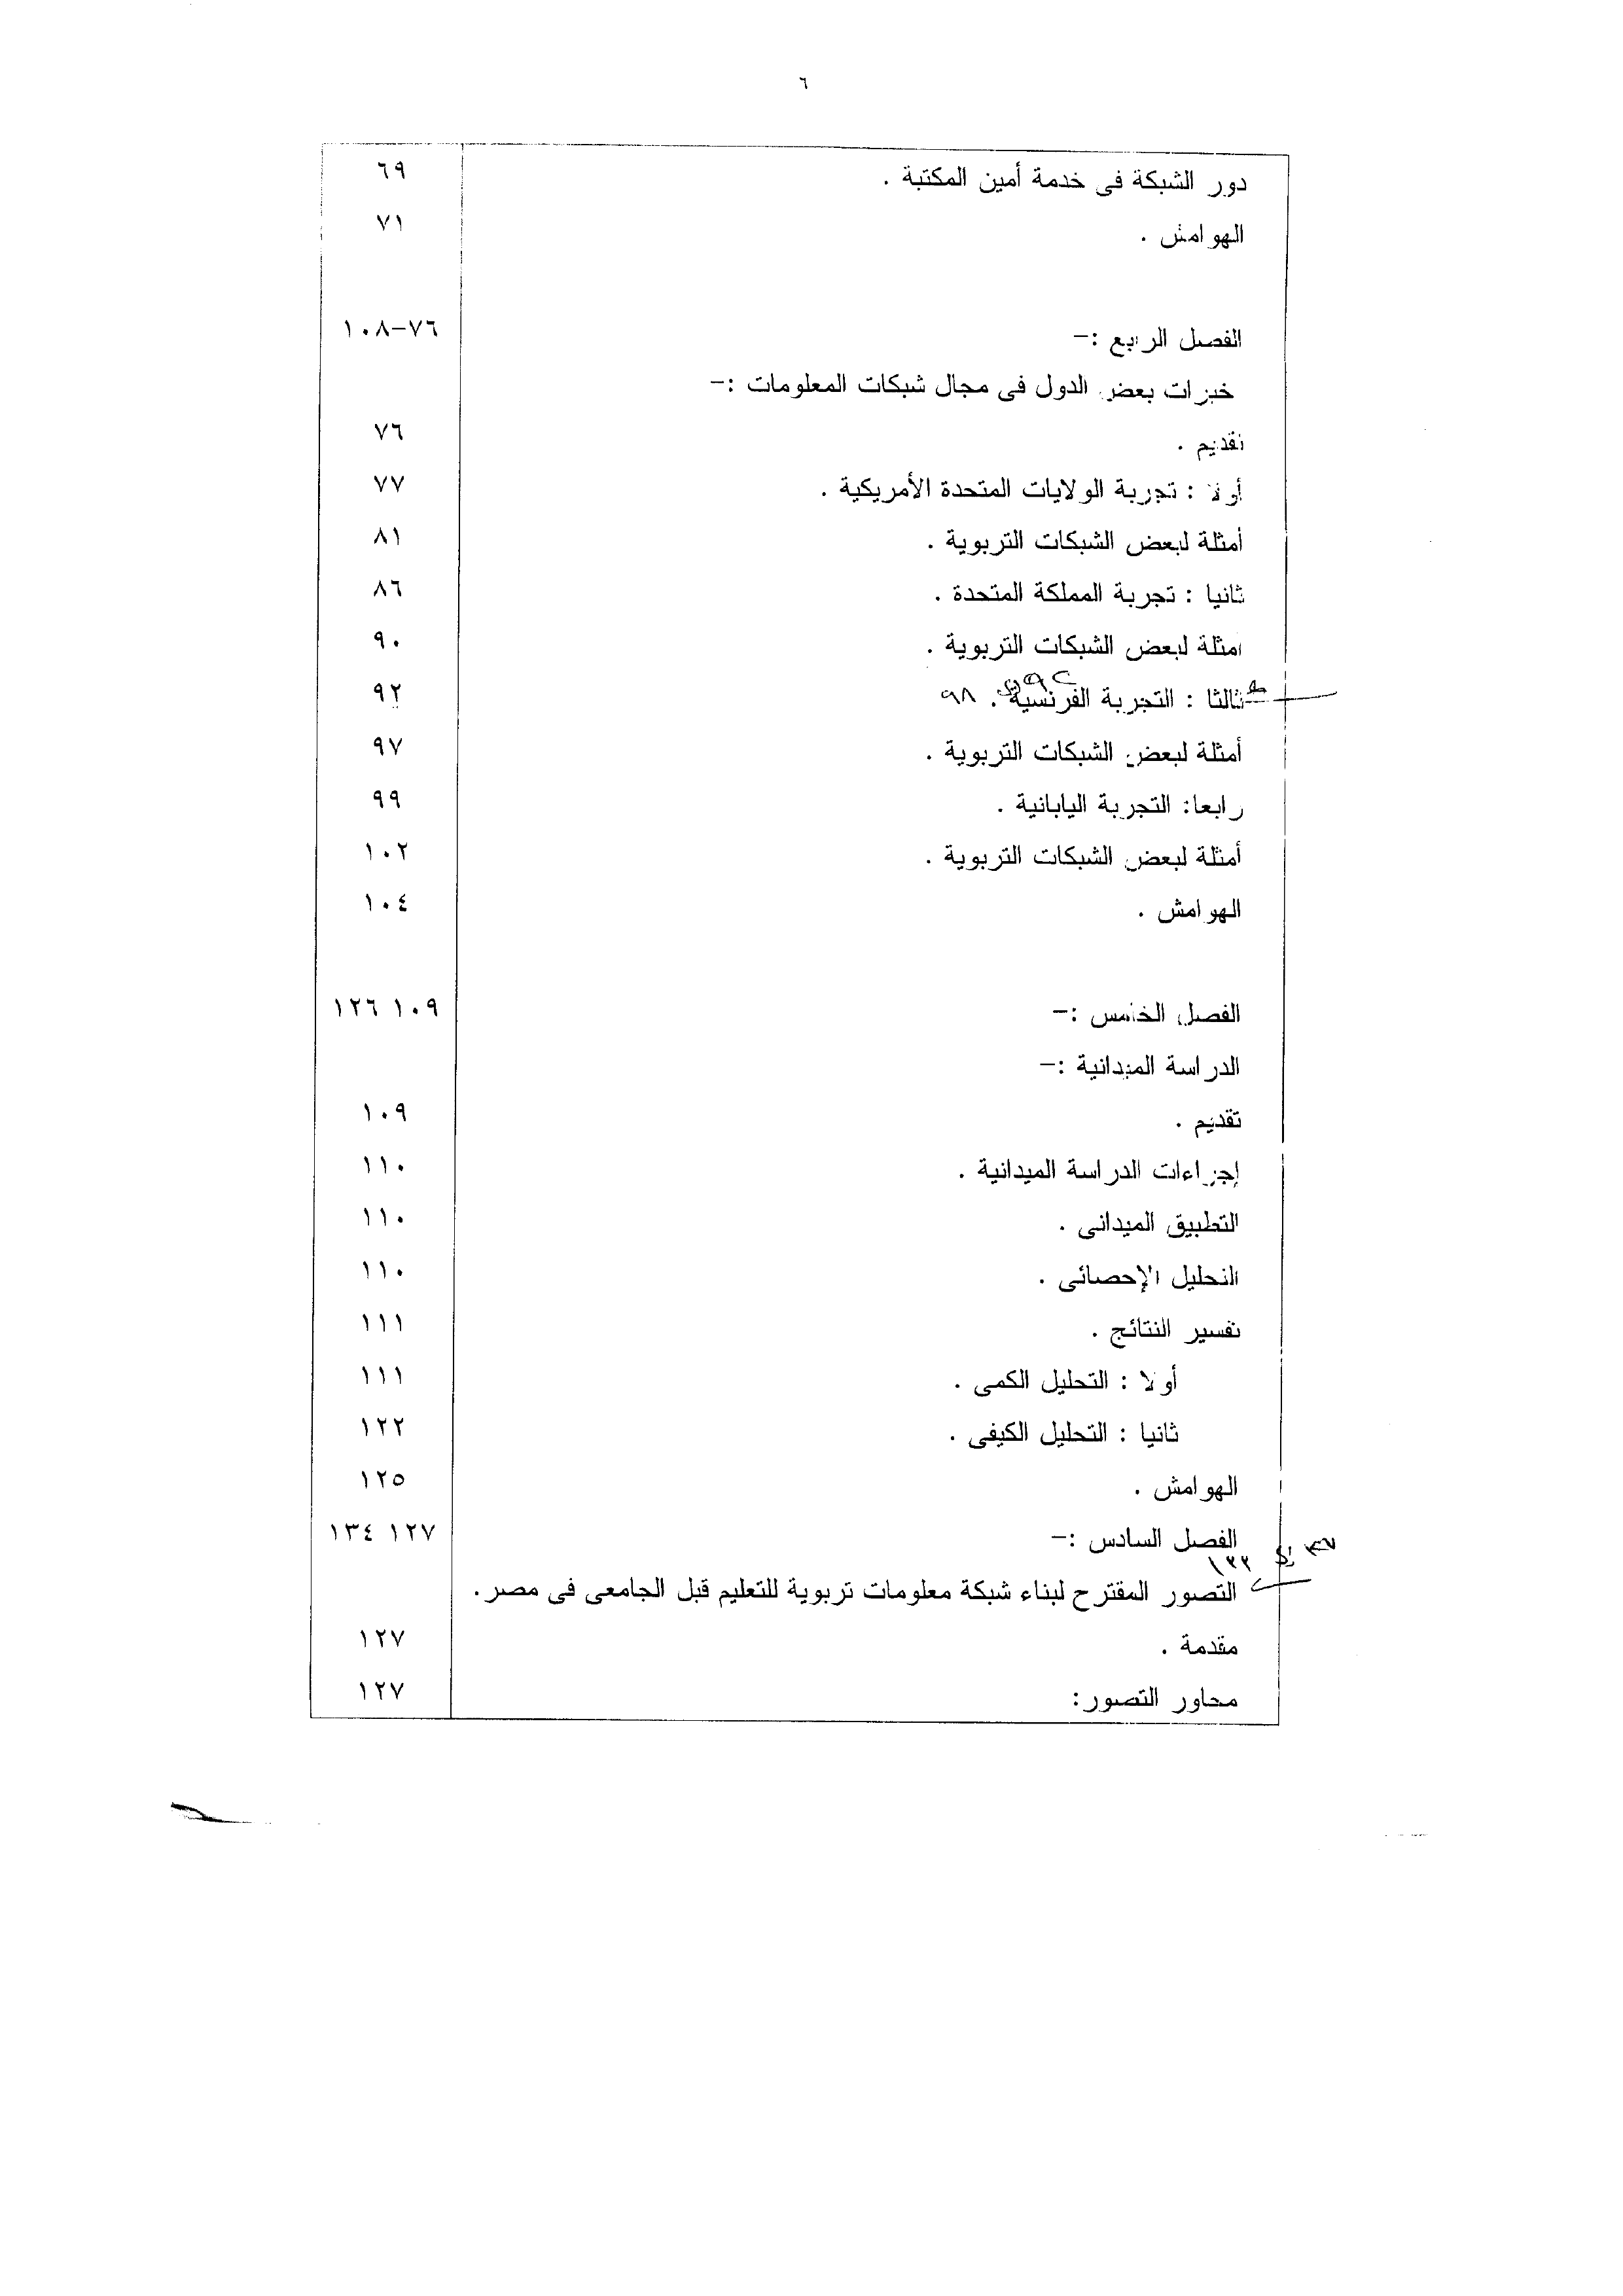 ٦
دور الشبكة فى خدمة أمين المكتبة . ٦٩
الهوامش . ٧١
الفصل الرابع :– ٧٦–١٠٨
خبرات بعض الدول فى مجال شبكات المعلومات :–
تقديم . ٧٦
أولا : تجربة الولايات المتحدة الأمريكية . ٧٧
أمثلة لبعض الشبكات التربوية . ٨١
ثانيا : تجربة المملكة المتحدة . ٨٦
أمثلة لبعض الشبكات التربوية . ٩٠
ثالثا : التجربة الفرنسية . ٩٨ ٩٢
أمثلة لبعض الشبكات التربوية . ٩٧
رابعا: التجربة اليابانية . ٩٩
أمثلة لبعض الشبكات التربوية . ١٠٢
الهوامش . ١٠٤
الفصل الخامس :– ١٠٩ ١٢٦
الدراسة الميدانية :–
تقديم . ١٠٩
إجراءات الدراسة الميدانية . ١١٠
التطبيق الميدانى . ١١٠
التحليل الإحصائى . ١١٠
تفسير النتائج . ١١١
أولا : التحليل الكمى . ١١١
ثانيا : التحليل الكيفى . ١٢٢
الهوامش . ١٢٥
الفصل السادس :– ١٢٧ ١٣٤
التصور المقترح لبناء شبكة معلومات تربوية للتعليم قبل الجامعى فى مصر.
مقدمة . ١٢٧
محاور التصور: ١٢٧